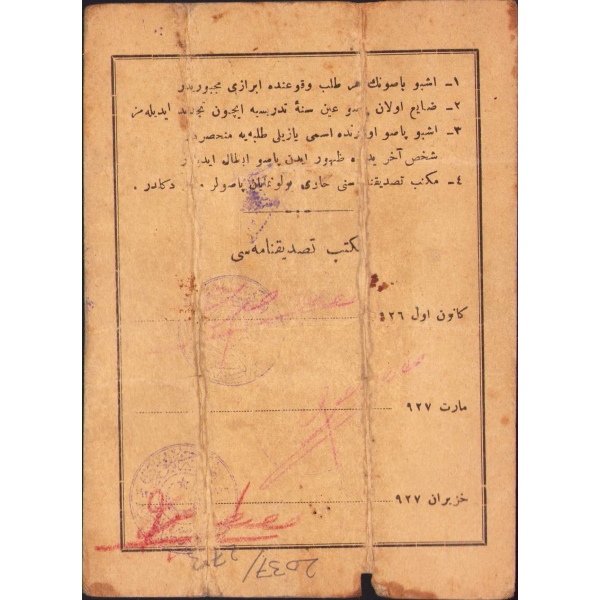 ١- اشبو پاسونك هر طلب وقوعنده ابرازی مجبوریدر
٢- ضایع اولان پاسو عین سنهٔ تدریسیه ایچون تجدید ایدیله‌مز
٣- اشبو پاسو اوزرنده اسمی یازیلی طلبه‌یه منحصردر
شخص آخر یدنده ظهور ایدن پاسو ابطال ایدیلیر
٤- مكتب تصدیقنامه‌سنی حاوی بولونمایان پاسولر دكلدر .
مكتب تصدیقنامه‌سی
كانون اول ٩٢٦
مارت ٩٢٧
خزیران ٩٢٧
2037/